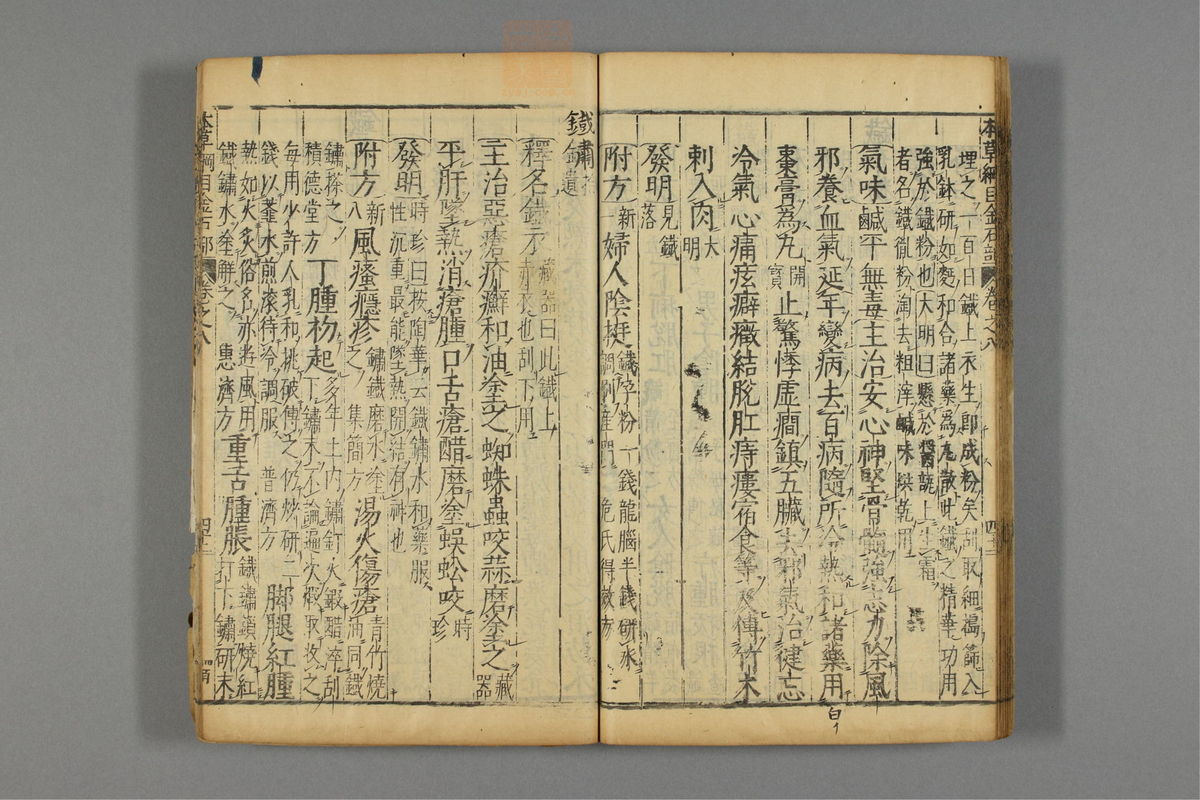 本草綱目金石部 卷之八 四十三
埋之一百日鐵上衣生卽成粉矣刮取細擣篩入
乳鉢研如麪和合諸藥爲丸散此鐵之精華功用
強於鐵粉也大明曰懸於醬瓿上生霜
者名鐵胤粉淘去粗滓鹹味烘乾用
氣味鹹平無毒主治安心神堅骨髓強志力除風
邪養血氣延年變病去百病隨所冷熱和諸藥用
棗膏為丸開寶止驚悸虛癇鎮五臟去邪氣治健忘
冷氣心痛痃癖癥結脫肛痔瘻宿食等及傅竹木
刺入肉大明
發明見鐵落
附方新一婦人陰挺鐵孕粉一錢龍腦半錢研水
調刷產門 危氏得效方
鐵鏽拾遺
釋名鐵衣藏器曰此鐵上
赤衣也刮下用
主治惡瘡疥癬和油塗之蜘蛛蟲咬蒜磨塗之藏器
平肝墜熱消瘡腫口舌瘡醋磨塗蜈蚣咬時珍
發明時珍曰按陶華云鐵鏽水和藥服
性沉重最能墜熱開結有神也
附方新八風瘙癮疹鏽鐵磨水塗之 集簡方 湯火傷瘡青竹燒油同鐵
鏽搽之
積德堂方 丁腫初起多年土內鏽釘火煅醋淬刮
丁鏽末不論遍次煅取收之
每用少許人乳和挑破傅之仍炒研二
錢以虀水煎滾待冷調服 普濟方 脚腿紅腫
熱如火炙俗名赤遊風用
鐵鏽水塗解之 惠濟方 重舌腫脹鐵鏽鎖燒紅
打下鏽研末
本草綱目金石部 卷之八 四十四